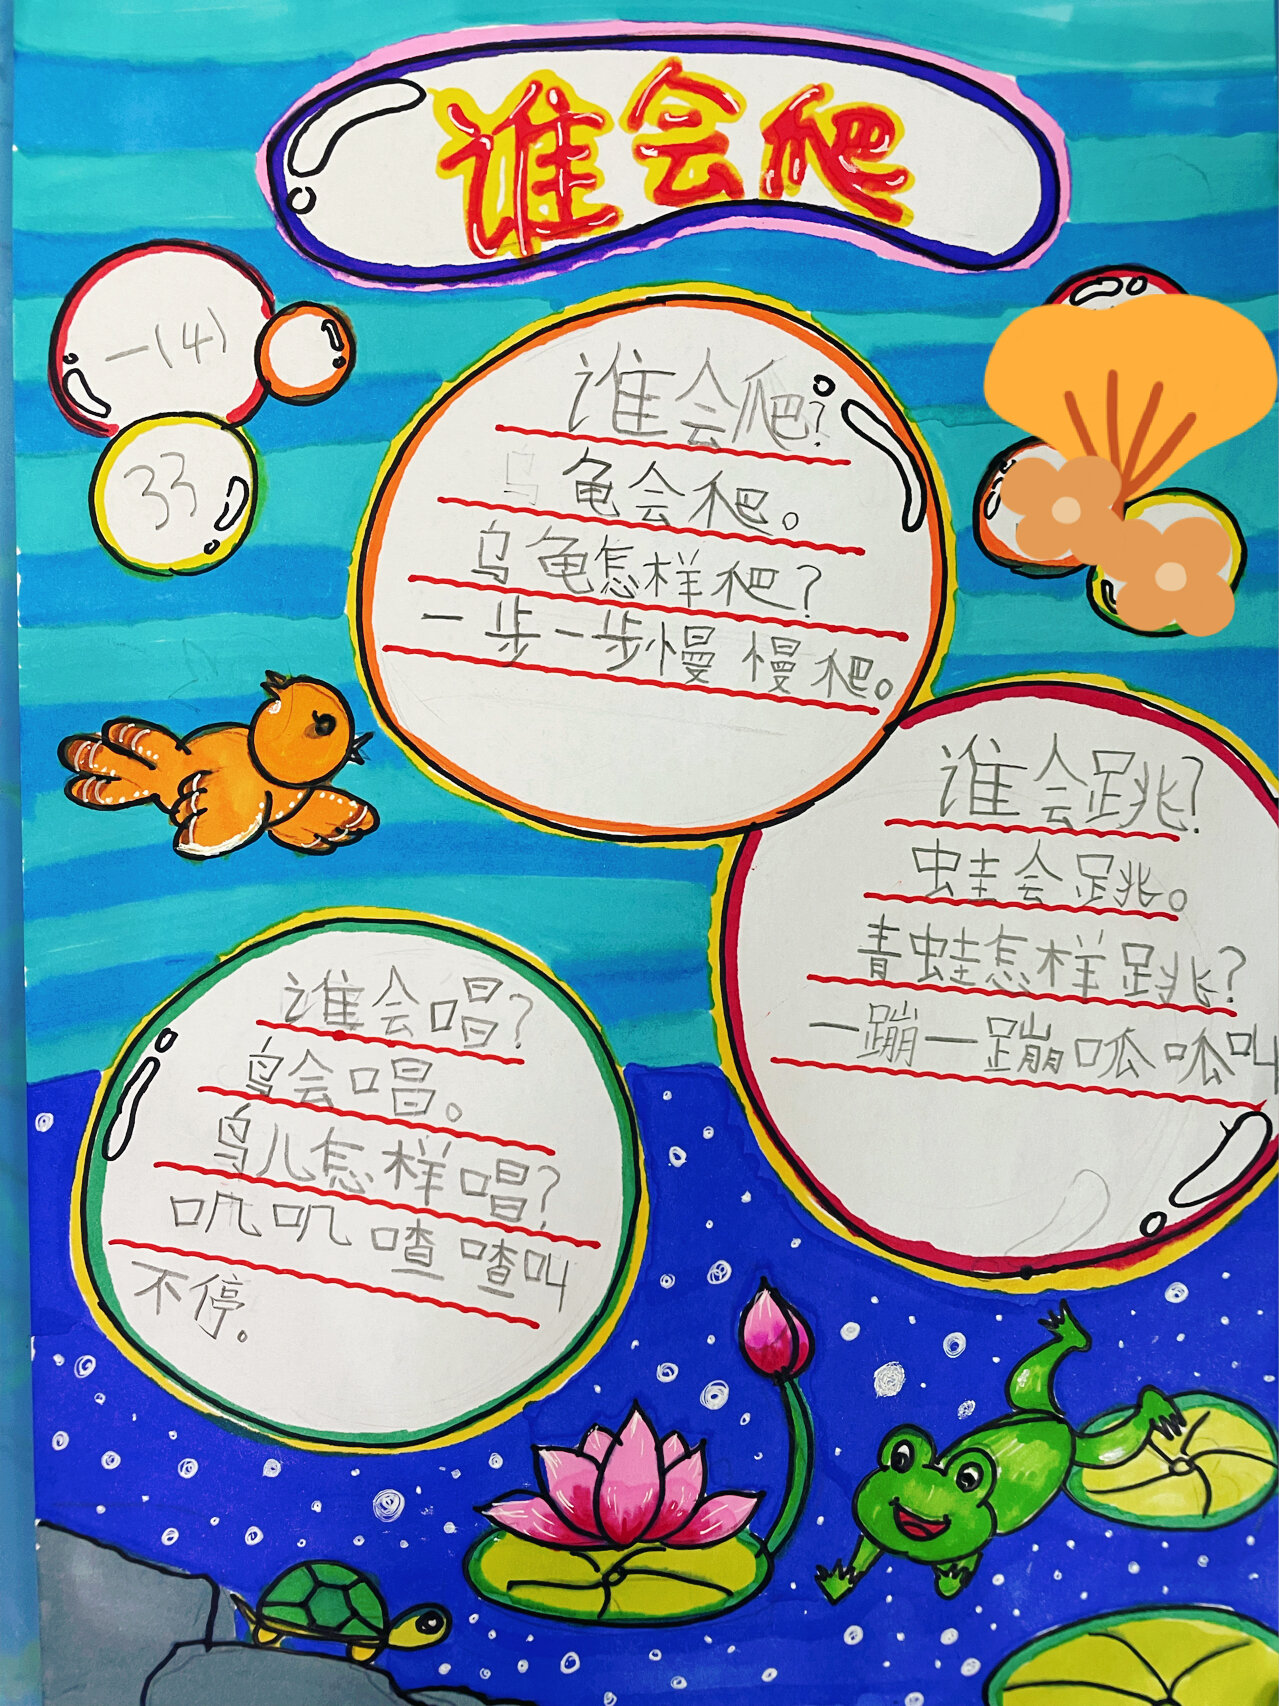 谁会爬
一(4)
33
谁会爬?
乌龟会爬。
乌龟怎样爬?
一步一步慢慢爬。
谁会跳?
蛙会跳。
青蛙怎样跳?
一蹦一蹦呱呱叫
谁会唱?
鸟会唱。
鸟儿怎样唱?
叽叽喳喳叫
不停。